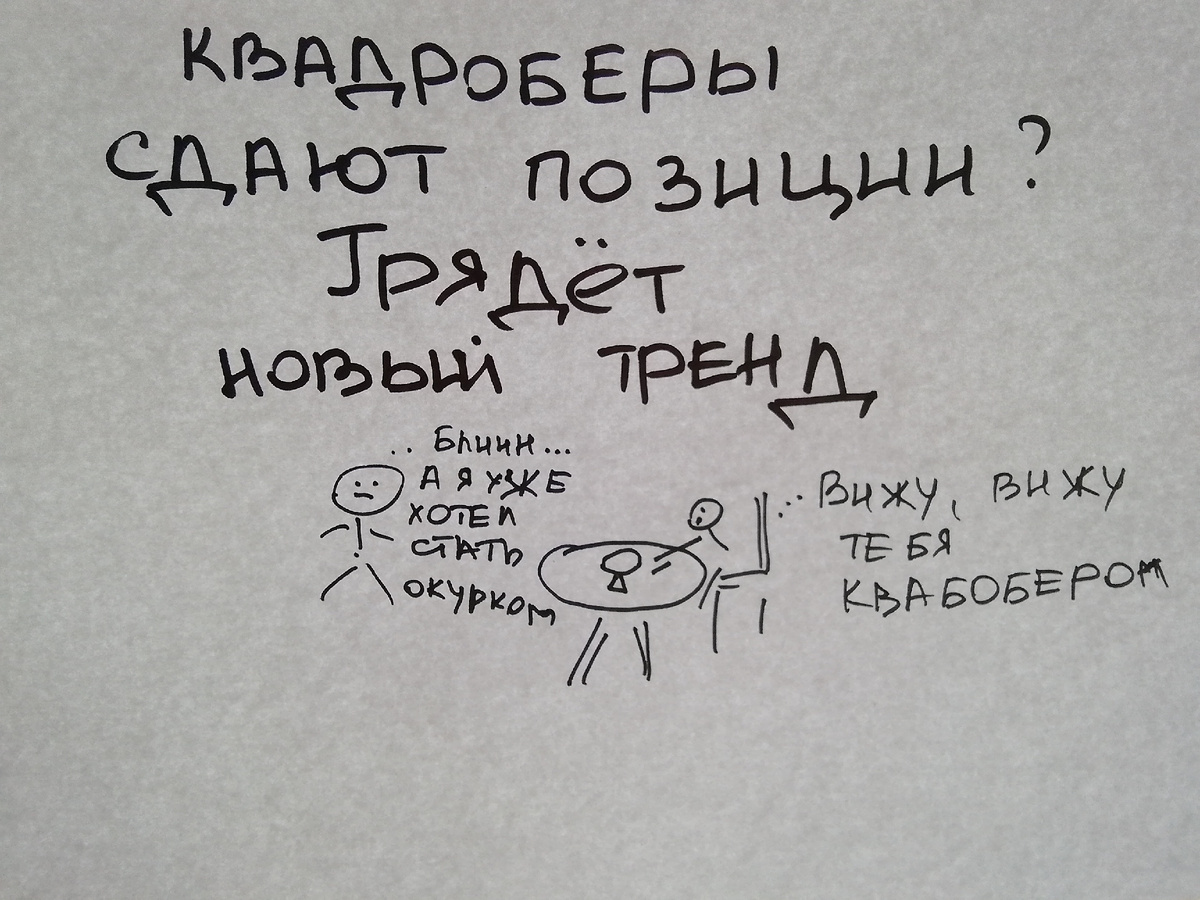 КВАДРОБЕРЫ
СДАЮТ ПОЗИЦИИ?
Грядёт
новый ТРЕНД
.. Блиин...
А Я УЖЕ
ХОТЕЛ
СТАТЬ
ОКУРКОМ
... ВИЖУ, ВИЖУ
ТЕБЯ
КВАБОБЕРОМ